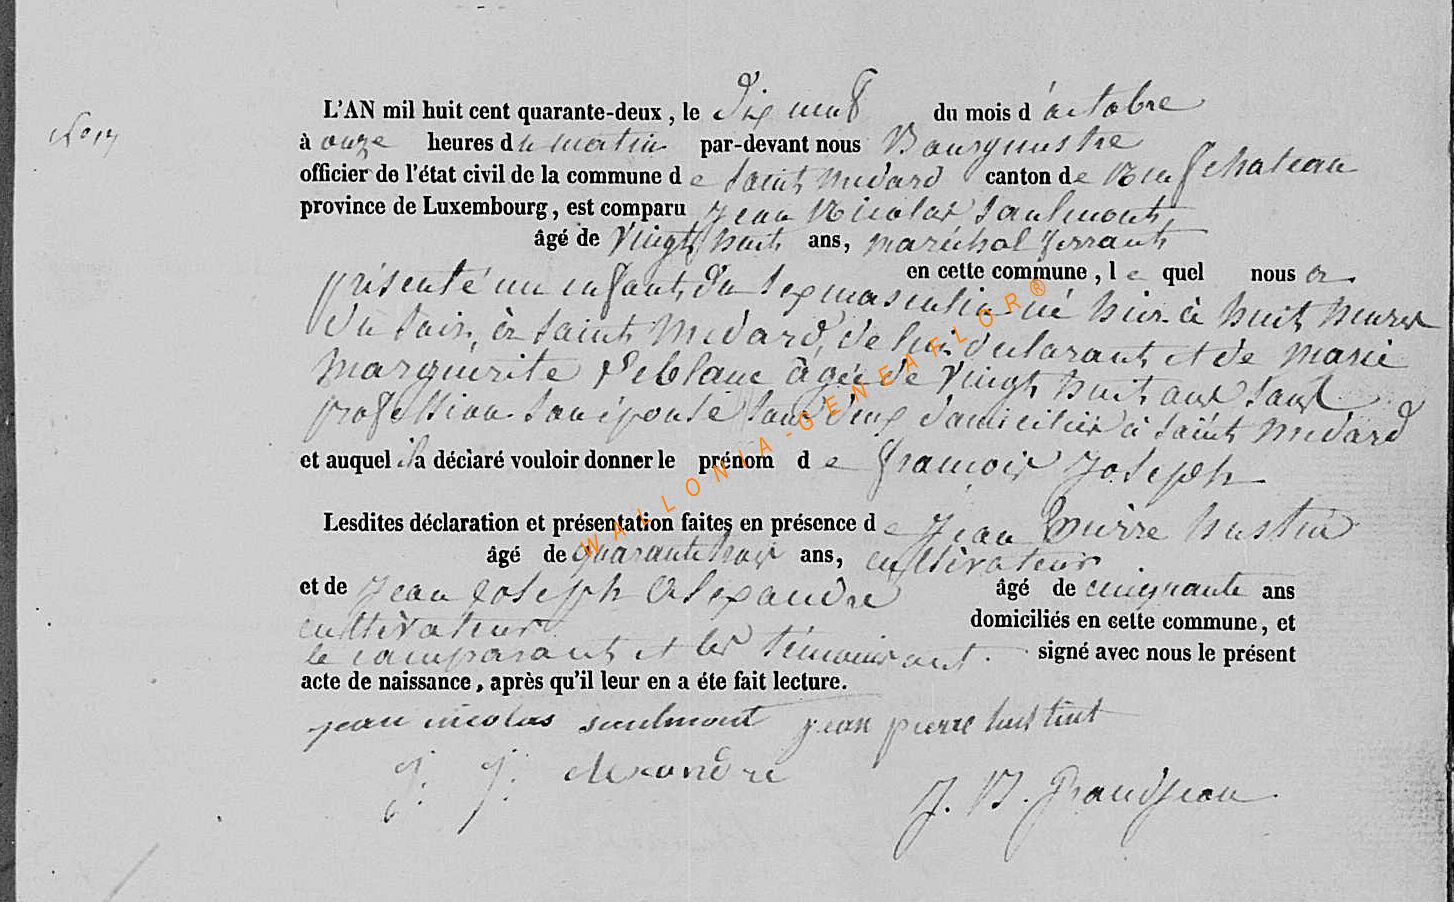 L'AN mil huit cent quarante-deux, le dix neuf du mois d'octobre
à onze heures du matin par-devant nous Bourgmestre
officier de l'état civil de la commune de Saint Médard canton de Neufchateau
province de Luxembourg, est comparu Jean Nicolas Saulmont
âgé de vingt huit ans, maréchal ferrant
en cette commune, le quel nous a
présenté un enfant du sexe masculin né hier à huit heures
du soir, à Saint Médard, de lui déclarant et de Marie
Marguerite Leblanc âgée de vingt huit ans sans
profession son épouse tous deux domiciliés à Saint Médard
et auquel il a déclaré vouloir donner le prénom de François Joseph
Lesdites déclaration et présentation faites en présence de Jean Pierre hustin
âgé de quarante trois ans, cultivateur
et de Jean Joseph Alexandre âgé de cinquante ans
cultivateur domiciliés en cette commune, et
le comparant et les témoins ont signé avec nous le présent
acte de naissance, après qu'il leur en a éte fait lecture.
jean nicolas saulmont jean pierre hustint
J. J. alexandre
J. B. Grandjean
WALLONIA-GENEAFLOR®